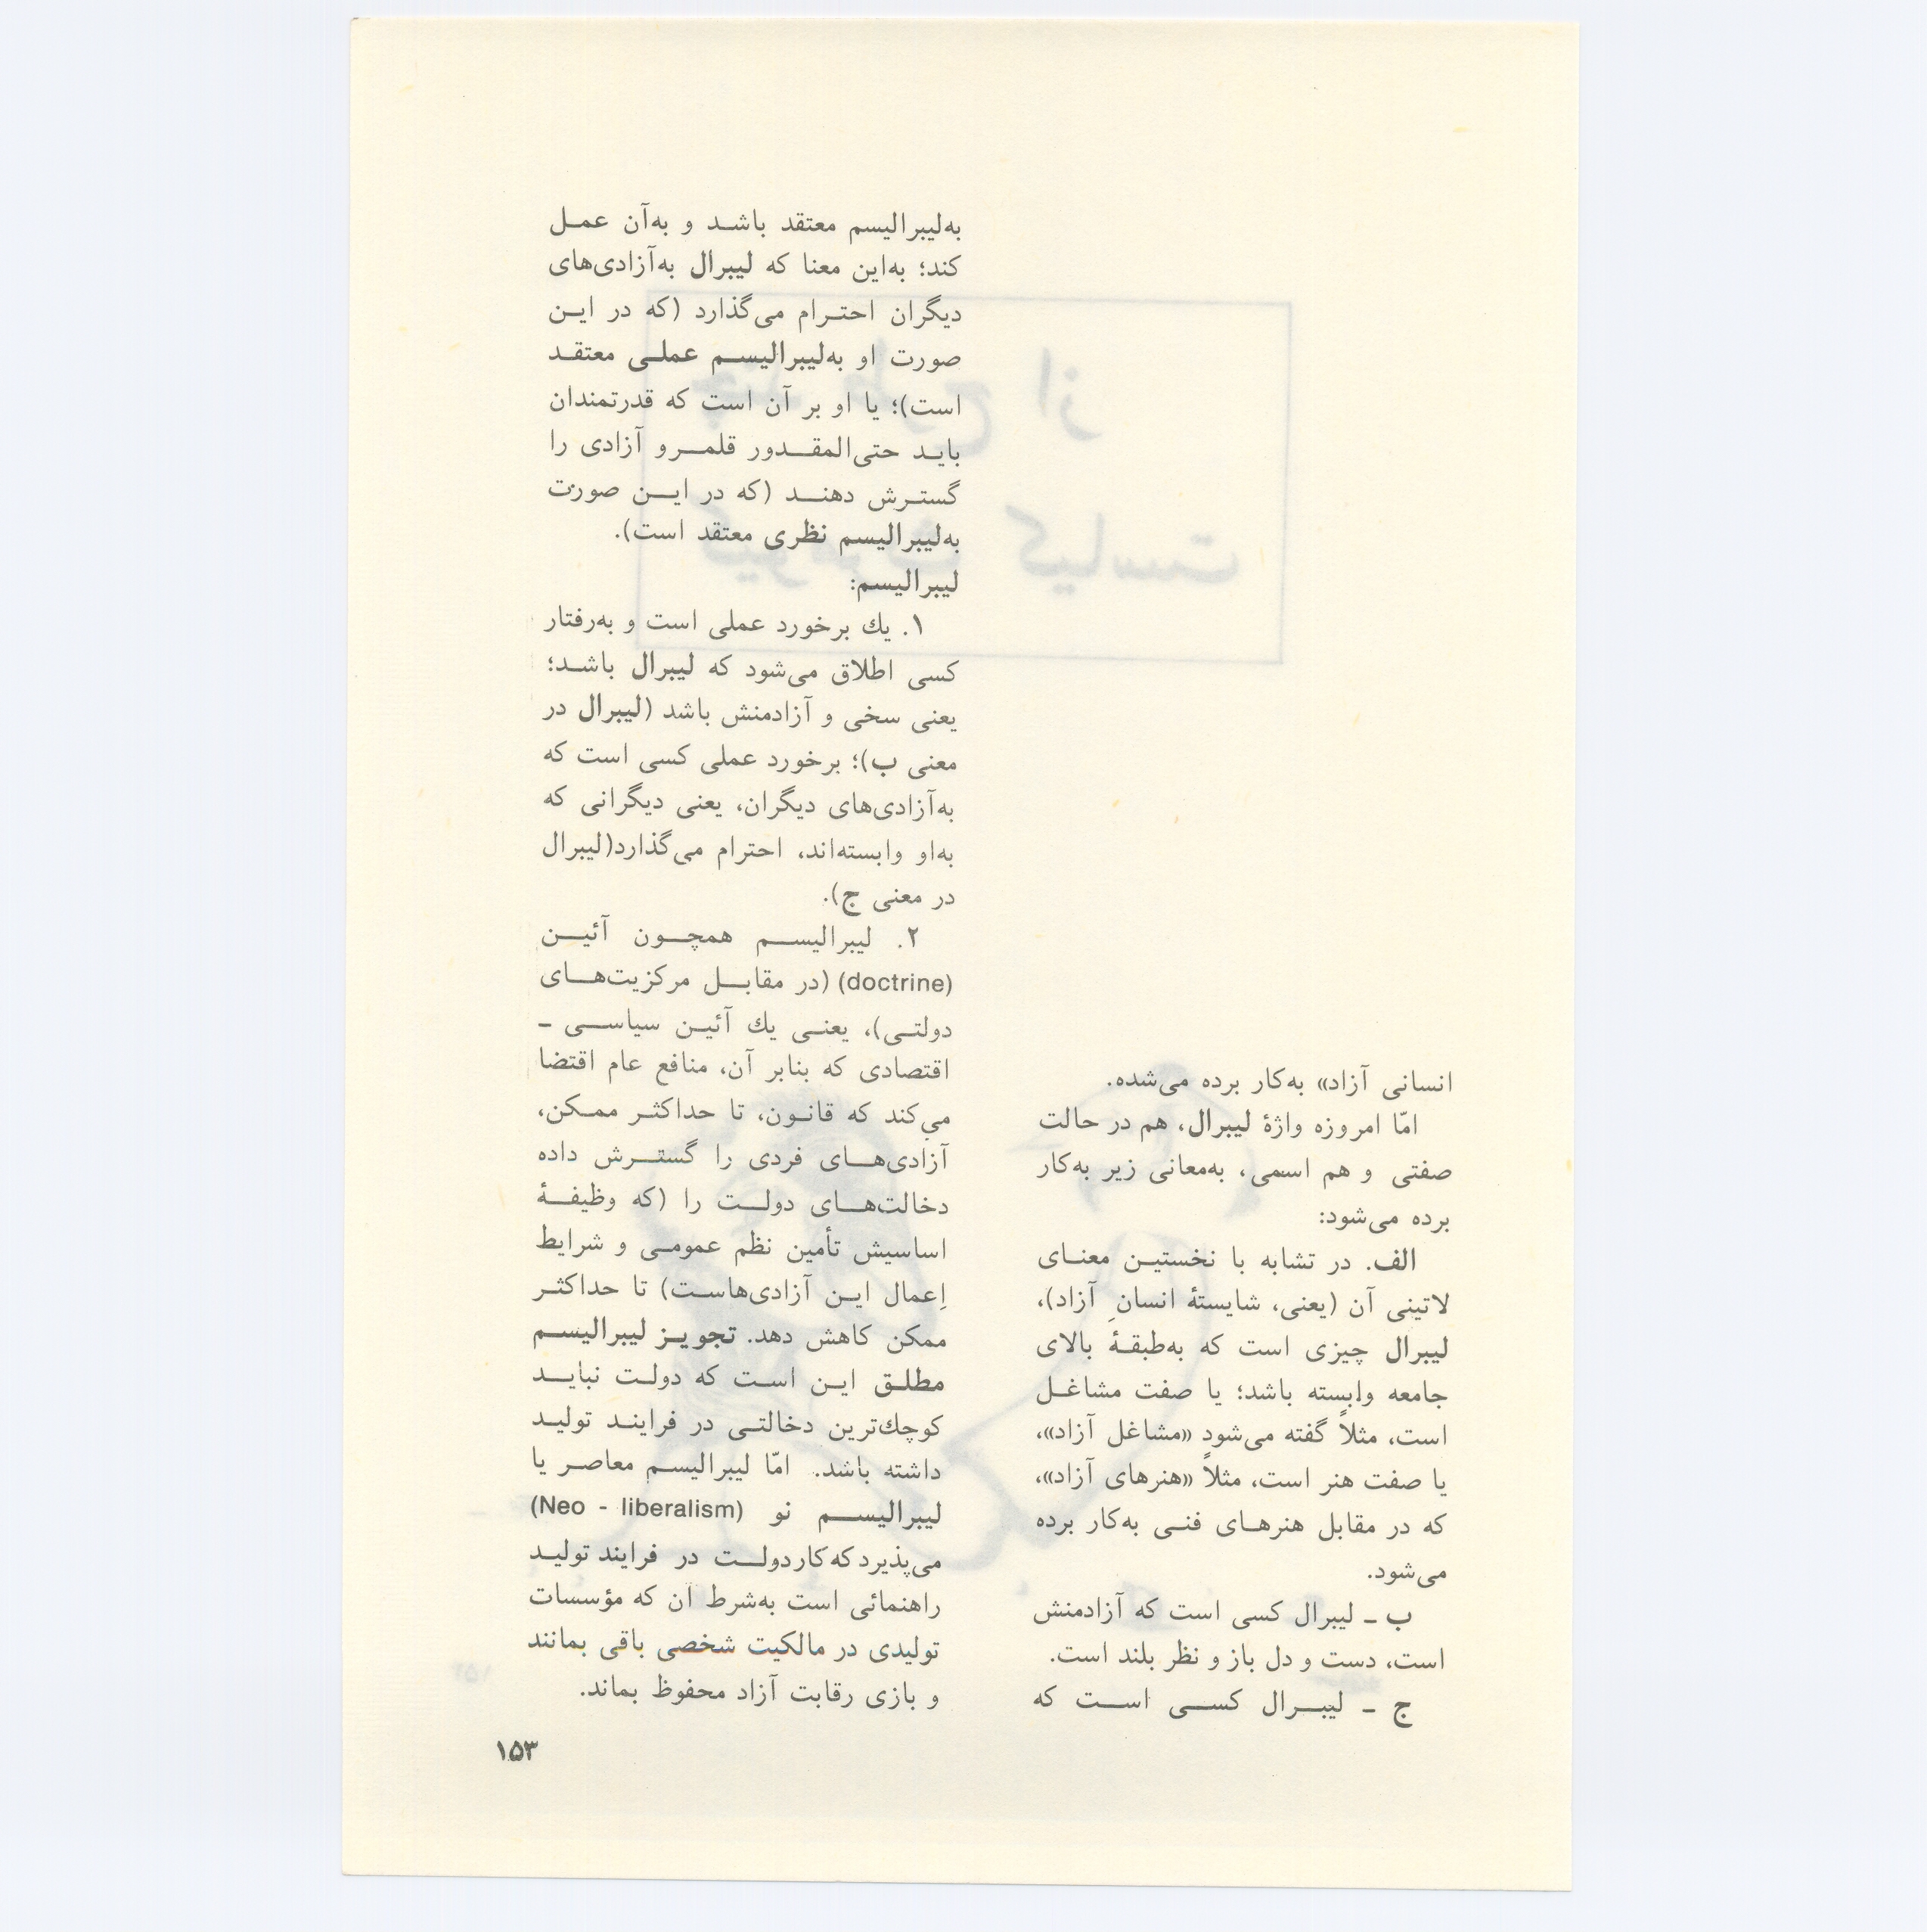 انسانی آزاد» به‌کار برده می‌شده.
امّا امروزه واژهٔ لیبرال، هم در حالت
صفتی و هم اسمی، به‌معانی زیر به‌کار
برده می‌شود:
الف. در تشابه با نخستیـن معنـای
لاتینی آن (یعنی، شایستهٔ انسانِ آزاد)،
لیبرال چیزی است که به‌طبقـهٔ بالای
جامعه وابسته باشد؛ یا صفت مشاغـل
است، مثلاً گفته می‌شود «مشاغل آزاد»،
یا صفت هنر است، مثلاً «هنرهای آزاد»،
که در مقابل هنرهـای فنـی به‌کار برده
می‌شود.
ب ـ لیبرال کسی است که آزادمنش
است، دست و دل باز و نظر بلند است.
ج ـ لیبـــرال کســـی اســـت که
به‌لیبرالیسم معتقد باشـد و به‌آن عمـل
کند؛ به‌این معنا که لیبرال به‌آزادی‌های
دیگران احتـرام می‌گذارد (که در ایـن
صورت او به‌لیبرالیســم عملـی معتقـد
است)؛ یا او بر آن است که قدرتمندان
بایـد حتی‌المقـــدور قلمـــرو آزادی را
گستـرش دهنــد (که در ایــن صورت
به‌لیبرالیسم نظری معتقد است).
لیبرالیسم:
۱. یك برخورد عملی است و به‌رفتار
کسی اطلاق می‌شود که لیبرال باشـد؛
یعنی سخی و آزادمنش باشد (لیبرال در
معنی ب)؛ برخورد عملی کسی است که
به‌آزادی‌های دیگران، یعنی دیگرانی که
به‌او وابسته‌اند، احترام می‌گذارد(لیبرال
در معنی ج).
۲. لیبرالیســـم همچـــون آئیـــن
(doctrine) (در مقابـــل مرکزیت‌هـــای
دولتـی)، یعنـی یك آئیـن سیاســی ـ
اقتصادی که بنابر آن، منافع عام اقتضا
می‌کند که قانـون، تا حداکثـر ممـکن،
آزادی‌هـــای فردی را گستـــرش داده
دخالت‌هـــای دولـــت را (که وظیفـــهٔ
اساسیش تأمین نظم عمومـی و شرایط
اِعمال ایـن آزادی‌هاسـت) تا حداکثـر
ممکن کاهش دهد. تجویـز لیبرالیسـم
مطلـق ایـن اسـت که دولـت نبایــد
کوچك‌ترین دخالتـی در فراینـد تولیـد
داشته باشد. امّا لیبرالیسـم معاصـر یا
لیبرالیســـم نو (Neo - liberalism)
می‌پذیرد که کار دولـــت در فرایند تولیـد
راهنمائی است به‌شرط آن که مؤسسات
تولیدی در مالکیت شخصی باقی بمانند
و بازی رقابت آزاد محفوظ بماند.
۱۵۳